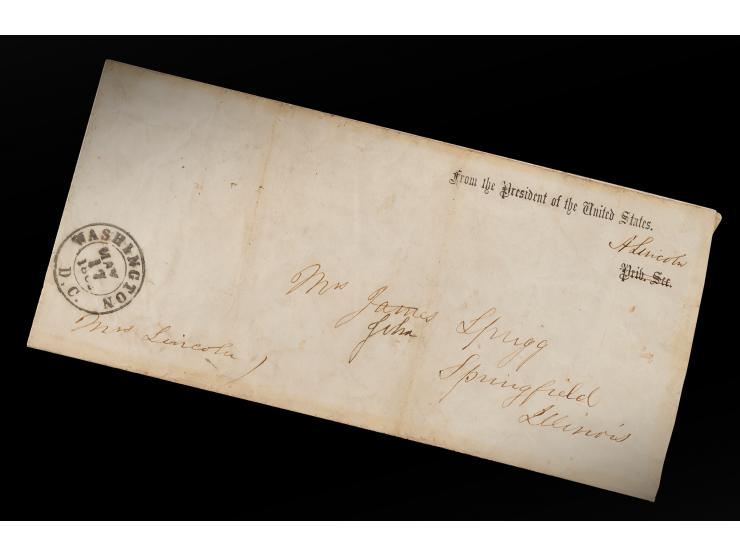 From the President of the United States.
A Lincoln
Priv. Sec.
WASHINGTON
MAY
17
D.C.
Mrs James Sprigg
John
Springfield
Illinois
Mrs Lincoln)